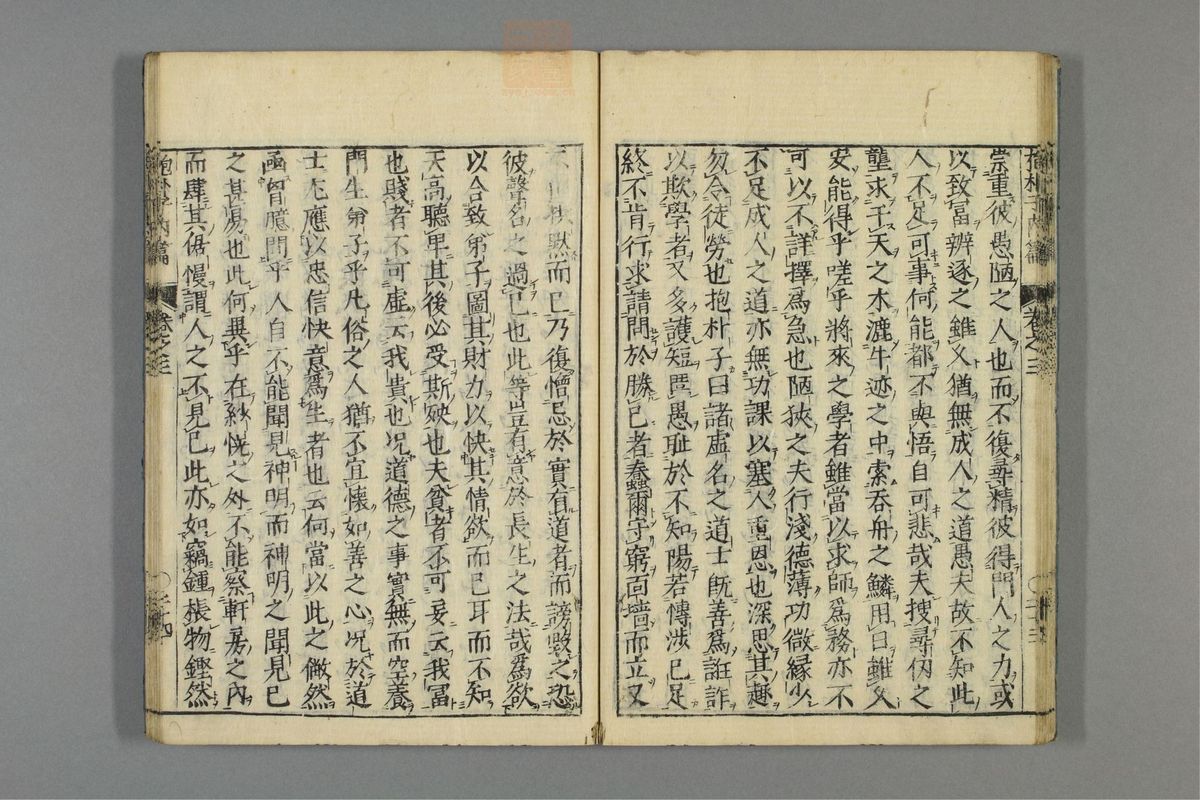 抱朴子內篇 卷之三
崇重彼愚陋之人也而不復尋精彼得門人之力或
以致冨辨逐之雖乆猶無成人之道愚夫故不知此
人不足可事何能都不與悟自可悲哉夫搜尋仭之
壟求干天之木漉牛迹之中索吞舟之鱗用日雖乆
安能得乎嗟乎將來之學者雖當以求師爲務亦不
可以不詳擇爲急也陋狹之夫行淺德薄功微緣少
不足成人之道亦無功課以塞人重恩也深思其趣
勿令徒勞也抱朴子曰諸虛名之道士旣善爲誑詐
以欺學者又多護短匿愚耻於不知陽若慱涉已足
終不肯行求請問於勝己者蠢爾守窮靣墻而立又
不 默而已乃復憎忌於實有道者而謗毀之恐
彼聲名之過己也此等豈有意於長生之法哉爲欲
以合致弟子圖其財力以快其情欲而已耳而不知
天高聽卑其後必受斯殃也夫貧者不可妄云我冨
也賤者不可虛云我貴也况道德之事實無而空養
門生弟子乎凡俗之人猶不宜懷妬善之心况於道
士尤應以忠信快意爲生者也云何當以此之儆然
函胷臆間乎人自不能聞見神明而神明之聞見已
之甚昜也此何異乎在紗幌之外不能察軒房之內
而肆其倨慢謂人之不見已此亦如竊鍾棖物鏗然
抱朴子內篇 卷之三